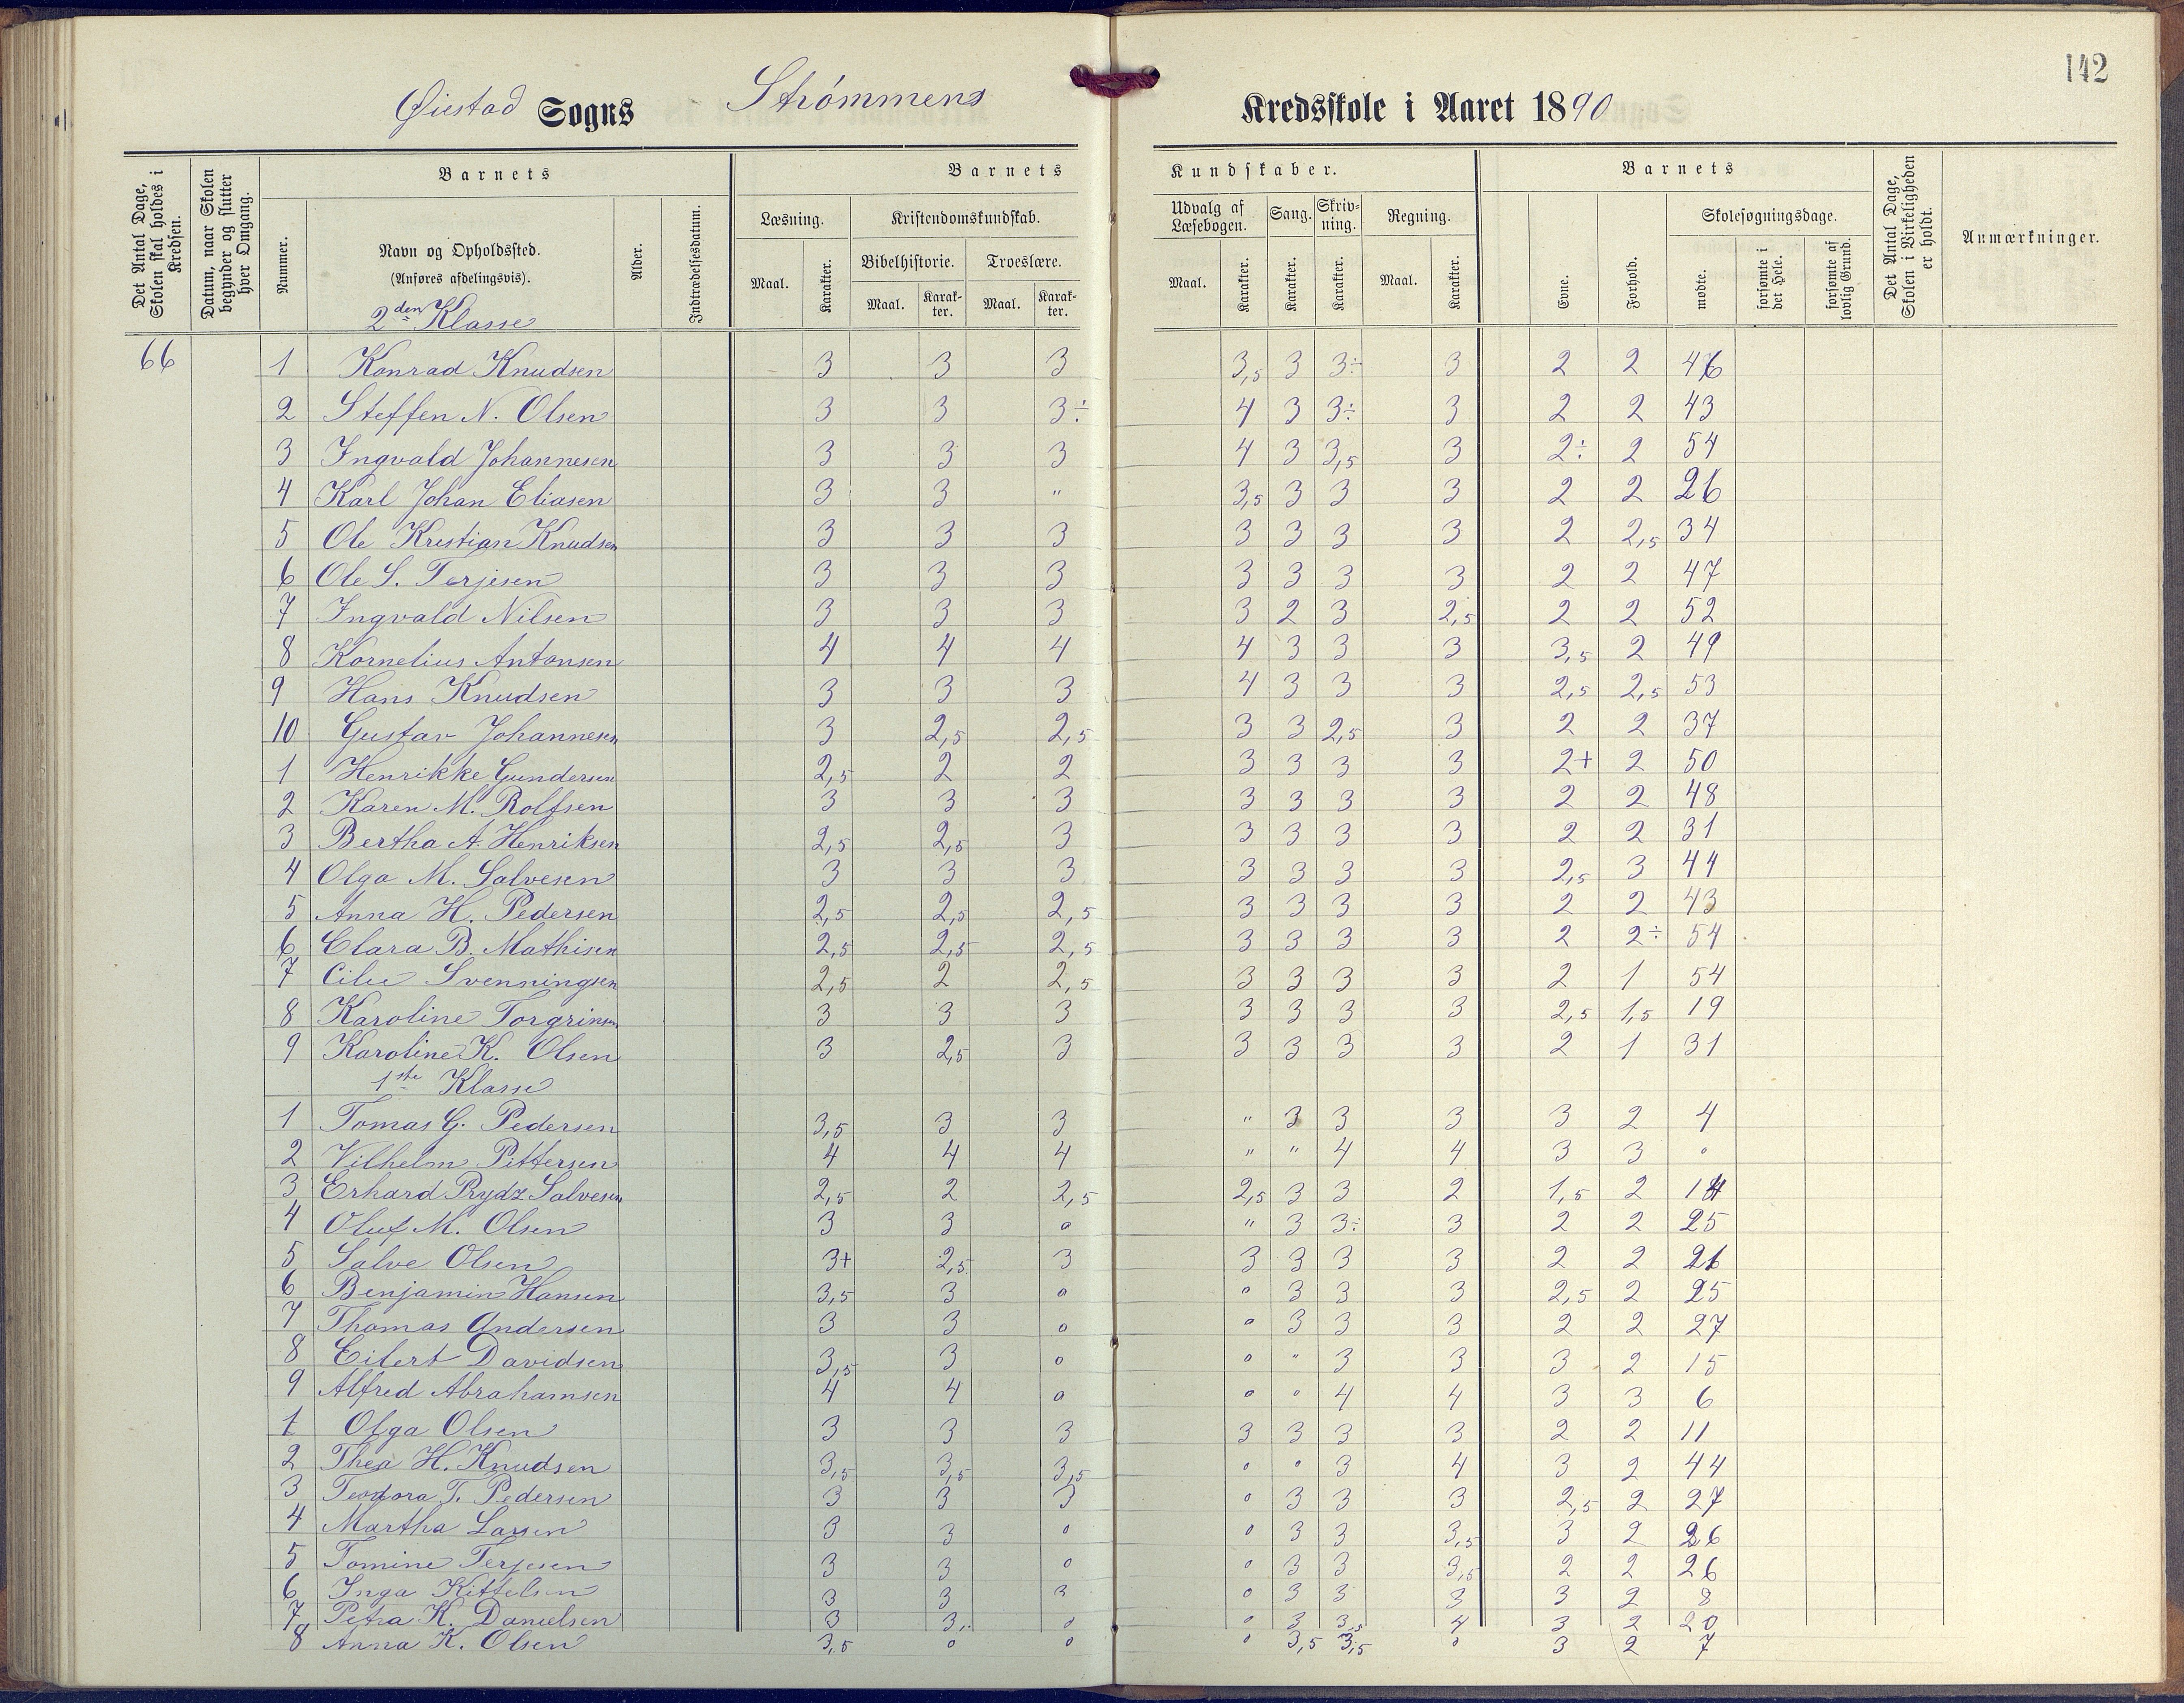 142
Øiestad Sogns Strømmens Kredsskole i Aaret 1890
Det Antal Dage, Skolen skal holdes i Kredsen.
Datum, naar Skolen begynder og slutter hver Omgang.
Barnets
Nummer.
Navn og Opholdssted.
(Anføres afdelingsvis).
Alder.
Indtrædelsesdatum.
Barnets Kundskaber.
Læsning.
Maal. Karakter.
Kristendomskundskab.
Bibelhistorie. Troeslære.
Maal. Karakter. Maal. Karakter.
Udvalg af Læsebogen.
Maal. Karakter.
Sang.
Karakter.
Skrivning.
Karakter.
Regning.
Maal. Karakter.
Barnets
Evne. Forhold.
Skolesøgningsdage.
mødte. forsømte i det Hele. forsømte af lovlig Grund.
Det Antal Dage, Skolen i Virkeligheden er holdt.
Anmærkninger.
2den Klasse
66 1 Konrad Knudsen 3 3 3 3,5 3 3÷ 3 2 2 46
2 Steffen N. Olsen 3 3 3÷ 4 3 3÷ 3 2 2 43
3 Ingvald Johannesen 3 3 3 4 3 3,5 3 2÷ 2 54
4 Karl Johan Eliasen 3 3 " 3,5 3 3 3 2 2 26
5 Ole Kristian Knudsen 3 3 3 3 3 3 3 2 2,5 34
6 Ole S. Terjesen 3 3 3 3 3 3 3 2 2 47
7 Ingvald Nilsen 3 3 3 3 2 3 2,5 2 2 52
8 Kornelius Antonsen 4 4 4 4 3 3 3 3,5 2 49
9 Hans Knudsen 3 3 3 4 3 3 3 2,5 2,5 53
10 Gustav Johannesen 3 2,5 2,5 3 3 2,5 3 2 2 37
1 Henrikke Gundersen 2,5 2 2 3 3 3 3 2+ 2 50
2 Karen M. Rolfsen 3 3 3 3 3 3 3 2 2 48
3 Bertha A. Henriksen 2,5 2,5 3 3 3 3 3 2 2 31
4 Olga M. Salvesen 3 3 3 3 3 3 3 2,5 3 44
5 Anna H. Pedersen 2,5 2,5 2,5 3 3 3 3 2 2 43
6 Clara B. Mathisen 2,5 2,5 2,5 3 3 3 3 2 2÷ 54
7 Svenningsen 2,5 2 2,5 3 3 3 3 2 1 54
8 Karoline Torgrimsen 3 3 3 3 3 3 3 2,5 1,5 19
9 Karoline K. Olsen 3 2,5 3 3 3 3 3 2 1 31
1ste Klasse
1 Tomas G. Pedersen 3,5 3 3 " 3 3 3 3 2 4
2 Vilhelm Pittersen 4 4 4 " " 4 4 3 3 0
3 Erhard Prydz Salvesen 2,5 2 2,5 2,5 3 3 2 1,5 2
4 Oluf M. Olsen 3 3 0 " 3 3÷ 3 2 2 25
5 Salve Olsen 3+ 2,5 3 3 3 3 3 2 2 26
6 Benjamin Hansen 3,5 3 0 0 3 3 3 2,5 2 25
7 Thomas Andersen 3 3 0 0 3 3 3 2 2 27
8 Eilert Davidsen 3,5 3 0 0 " 3 3 3 2 15
9 Alfred Abrahamsen 4 4 0 0 0 4 4 3 3 6
1 Olga Olsen 3 3 3 3 3 3 3 2 2 11
2 Thea H. Knudsen 3,5 3,5 3,5 0 0 3 4 3 2 44
3 Teodora T. Pedersen 3 3 3 0 3 3 3 2,5 2 27
4 Martha Larsen 3 3 0 0 3 3 3,5 3 2 26
5 Tomine Terjesen 3 3 0 0 3 3 3,5 2 2 26
6 Inga Kittelsen 3 3 3 0 3 3 3 3 2 8
7 Petra K. Danielsen 3 3 0 0 3 3,5 4 3 2 20
8 Anna K. Olsen 3,5 0 0 0 3,5 3,5 0 3 2 7